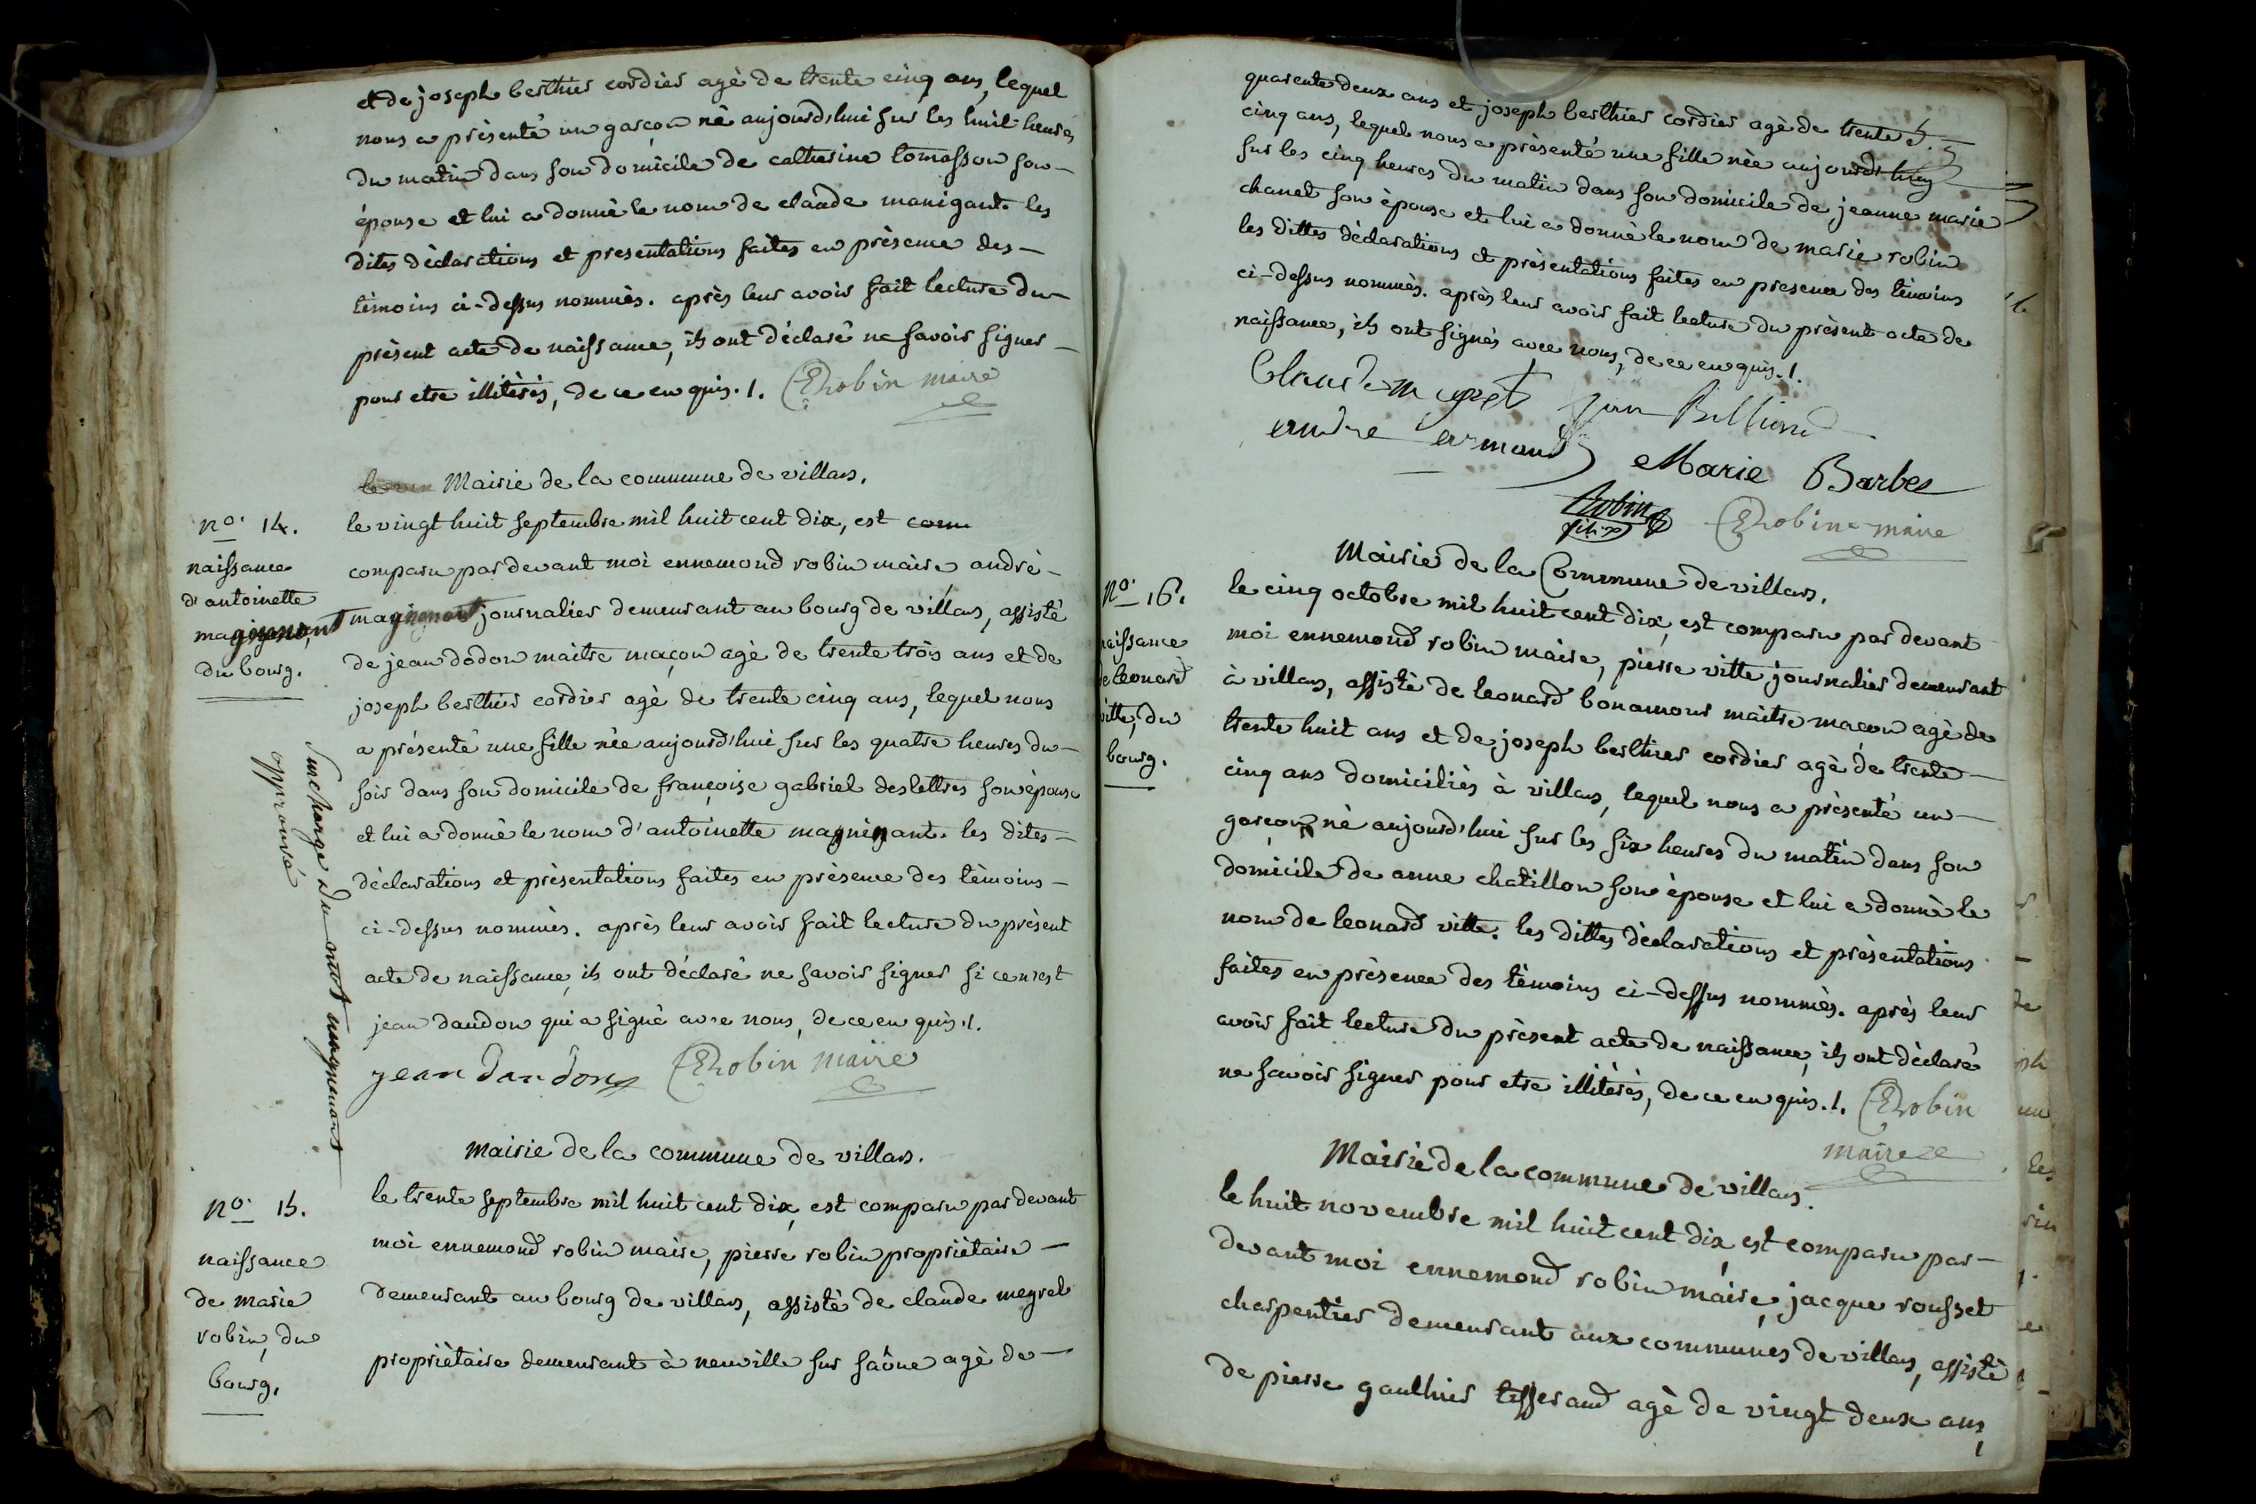 et de joseph berthier cordier agè de trente cinq ans, lequel
nous a présenté un garçon né aujourd'hui sur les huit heures
du matin dans son domicile de catherine tomasson son —
épouse et lui a donnè le nom de claude manigant. les
dites dèclarations et presentations faites en prèsence des —
tèmoins ci-dessus nommès. après leur avoir fait lecture du —
prèsent acte de naissance, ils ont dèclaré ne savoir signer —
pour etre illitèrés, de ce enquis ./. ERobin maire
Mairie de la commune de villars.
n.o 14.
naissance
d'antoinette
magnenant
du bourg.
le vingt huit septembre mil huit cent dix, est com
comparu par devant moi ennemond robin maire andrè —
magnenant journalier demeurant au bourg de villars, assisté
de jean dodon maitre maçon agè de trente trois ans et de
joseph berthier cordier agè de trente cinq ans, lequel nous
a présenté une fille née aujourd'hui sur les quatre heures du —
soir dans son domicile de françoise gabriel deslettres son épouse
et lui a donnè le nom d'antoinette magnenant. les dites —
dèclarations et prèsentations faites en prèsence des tèmoins —
ci-dessus nommès. après leur avoir fait lecture du prèsent
acte de naissance, ils ont dèclaré ne savoir signer si ce n'est
jean daudon qui a signè avec nous, de ce enquis ./.
jean dandon ERobin maire
Surcharge du mot magnenant
approuvé
Mairie de la commune de villars.
n.o 15.
naissance
de marie
robin, du
bourg.
le trente septembre mil huit cent dix, est comparu par devant
moi ennemond robin maire, pierre robin propriètaire —
demeurant au bourg de villars, assisté de claude megret
propriètaire demeurant à neuville sur saône agè de —
quarente deux ans et joseph berthier cordier agè de trente
cinq ans, lequel nous a prèsenté une fille nèe aujourd'huy
sur les cinq heures du matin dans son domicile de jeanne marie
chanet son èpouse et lui a donnè le nom de marie robin
les dittes dèclarations et prèsentations faites en presence des tèmoins
ci-dessus nommès. après leur avoir fait lecture du prèsent acte de
naissance, ils ont signès avec nous, de ce enquis ./.
Claude megret jean Billiond
andre armand Marie Barbe
Robin
ERobin maire
Mairie de la Commune de villars.
n.o 16.
naissance
de leonard
vitte, du
bourg.
le cinq octobre mil huit cent dix, est comparu par devant
moi ennemond robin maire, pierre vitte journalier demeurant
à villars, assistè de leonard bonamour maitre maçon agè de
trente huit ans et de joseph berthier cordier agè de trente —
cinq ans domiciliès à villars, lequel nous a prèsenté un —
garçon nè aujourd'hui sur les six heures du matin dans son
domicile de anne chatillon son èpouse et lui a donnè le
nom de leonard vitte. les dittes dèclarations et prèsentations
faites en prèsence des tèmoins ci-dessus nommès. après leur
avoir fait lecture du prèsent acte de naissance, ils ont dèclaré
ne savoir signer pour etre illitèrés, de ce enquis ./. ERobin
maire
Mairie de la commune de villars.
le huit novembre mil huit cent dix, est comparu par —
devant moi ennemond robin maire, jacque rousset
charpentier demeurant aux communes de villars, assistè
de pierre gauthier tisserand agè de vingt deux ans,